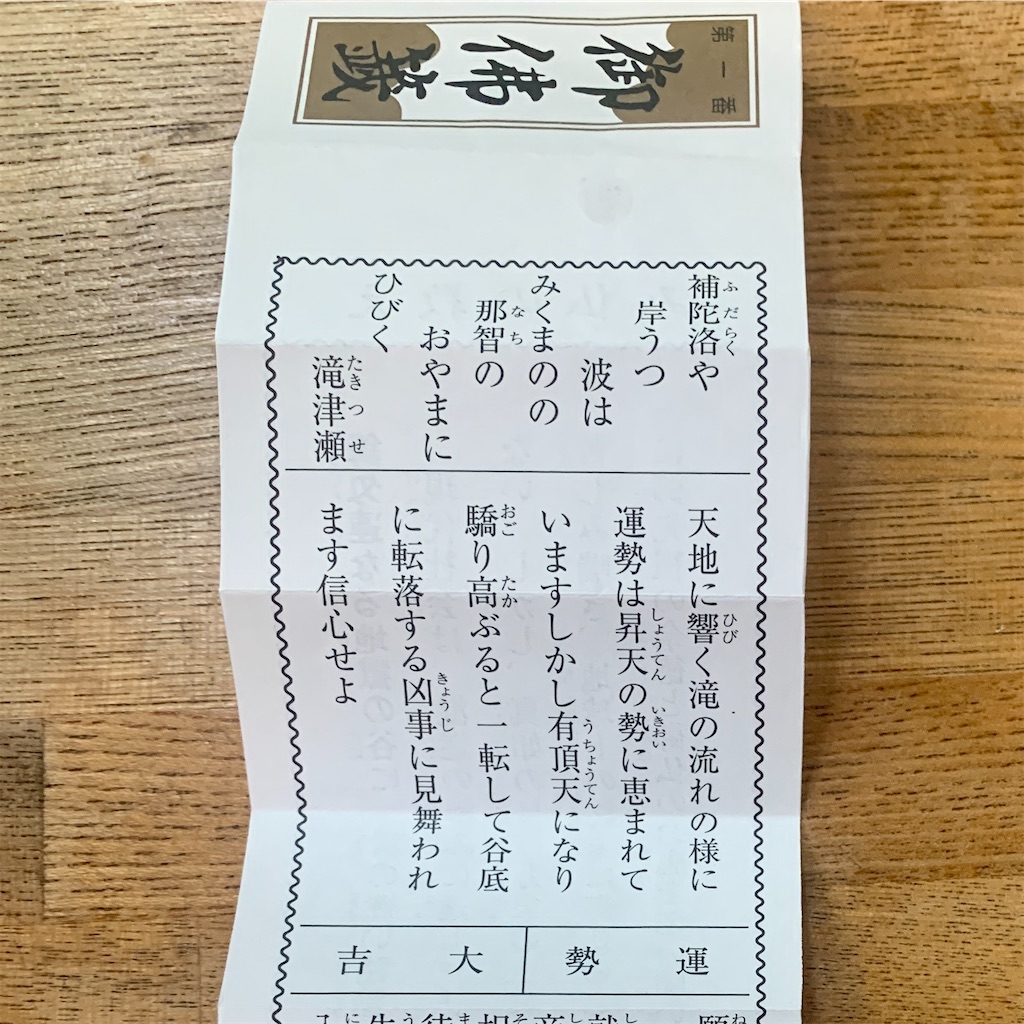 第一番
御佛籤
補陀洛や
岸うつ
波は
みくまのの
那智の
おやまに
ひびく
滝津瀬
天地に響く滝の流れの様に
運勢は昇天の勢に恵まれて
いますしかし有頂天になり
驕り高ぶると一転して谷底
に転落する凶事に見舞われ
ます信心せよ
運勢
大吉